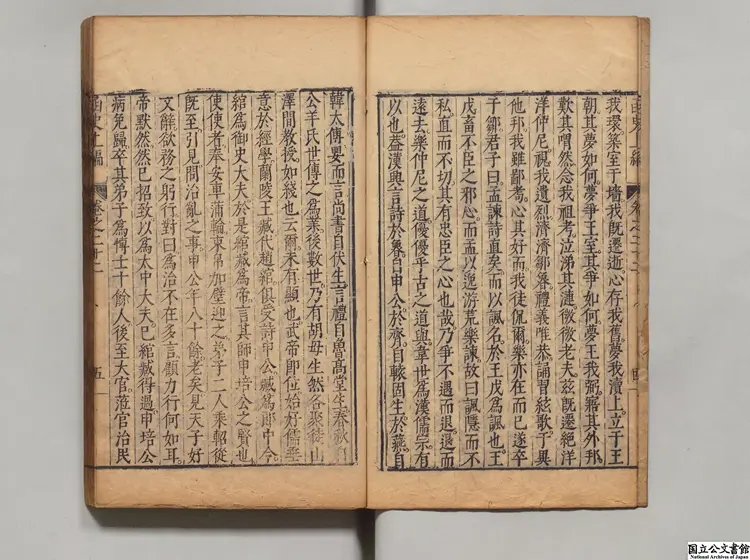 函史上編
卷之二十二
四
我環築室于墻我既遷逝心存我舊夢我瀆上立于王
朝其夢如何夢爭王室其爭如何夢王我弼寤其外邦
歎其喟然念我祖考泣涕其漣微微老夫茲既遷絕洋
洋仲尼視我遺烈濟濟鄒魯禮義唯恭誦習絃歌于異
他邦我雖鄙耇心其好而我徒侃爾樂亦在而已遂卒
子鄒君子曰孟諫詩直矣而以諷名於王戊爲諷也王
戊畜不臣之邪心而孟以逸游荒樂諫故曰諷隱而不
私直而不切其有忠臣之心也哉乃爭不遇而退退而
遠去樂仲尼之道優優乎古之道與韋世爲漢儒宗有
以也蓋漢興言詩於魯自申公於齊自轅固生於燕自
韓太傅嬰而言尚書自伏生言禮自魯高堂生春秋
公羊氏世傳之爲業後數世乃有胡毋生然各聚徒山
澤間教授如綫也云爾未有顯也武帝即位始好儒垂
意於經學蘭陵王臧代趙綰俱受詩申公臧爲郎中令
綰爲御史大夫於是綰臧爲帝言其師申培公之賢也
使使者奉安車蒲輪束帛加璧迎之弟子二人乘軺從
既至引見問治亂之事申公年八十餘老矣見天子好
文辭欲務之躬行對曰爲治不在多言顧力行何如耳
帝默然然已招致以爲太中大夫已綰臧得過申培公
病免歸卒其弟子爲博士十餘人後至大官蒞官治民
函史上編
卷之二十二
五
国立公文書館
National Archives of Japan